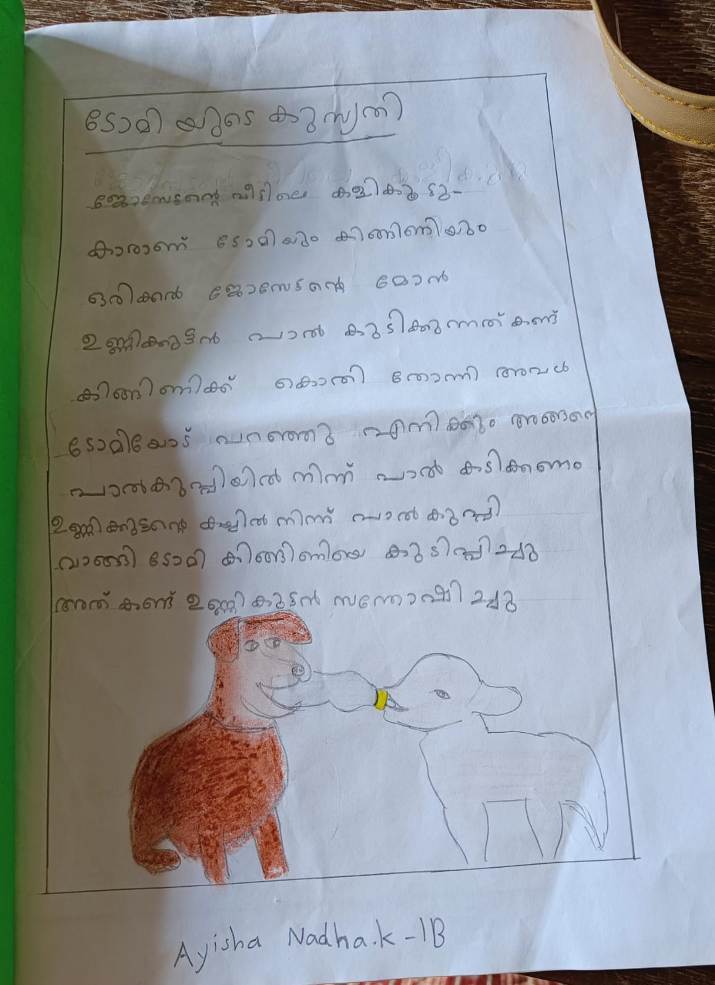 ടോമി യുടെ കുസൃതി
ജോസേട്ടന്റെ വീട്ടിലെ കളികൂട്ടു-
കാരാണ് ടോമിയും കിങ്ങിണിയും
ഒരിക്കൽ ജോസേട്ടന്റെ മോൻ
ഉണ്ണിക്കുട്ടൻ പാൽ കുടിക്കുന്നത് കണ്ട്
കിങ്ങിണിക്ക് കൊതി തോന്നി അവൾ
ടോമിയോട് പറഞ്ഞു എനിക്കും അങ്ങനെ
പാൽകുപ്പിയിൽ നിന്ന് പാൽ കുടിക്കണം
ഉണ്ണിക്കുട്ടന്റെ കയ്യിൽ നിന്ന് പാൽ കുപ്പി
വാങ്ങി ടോമി കിങ്ങിണിയെ കുടിപ്പിച്ചു
അത് കണ്ട് ഉണ്ണികുട്ടൻ സന്തോഷിച്ചു
Ayisha Nadha.K - 1B